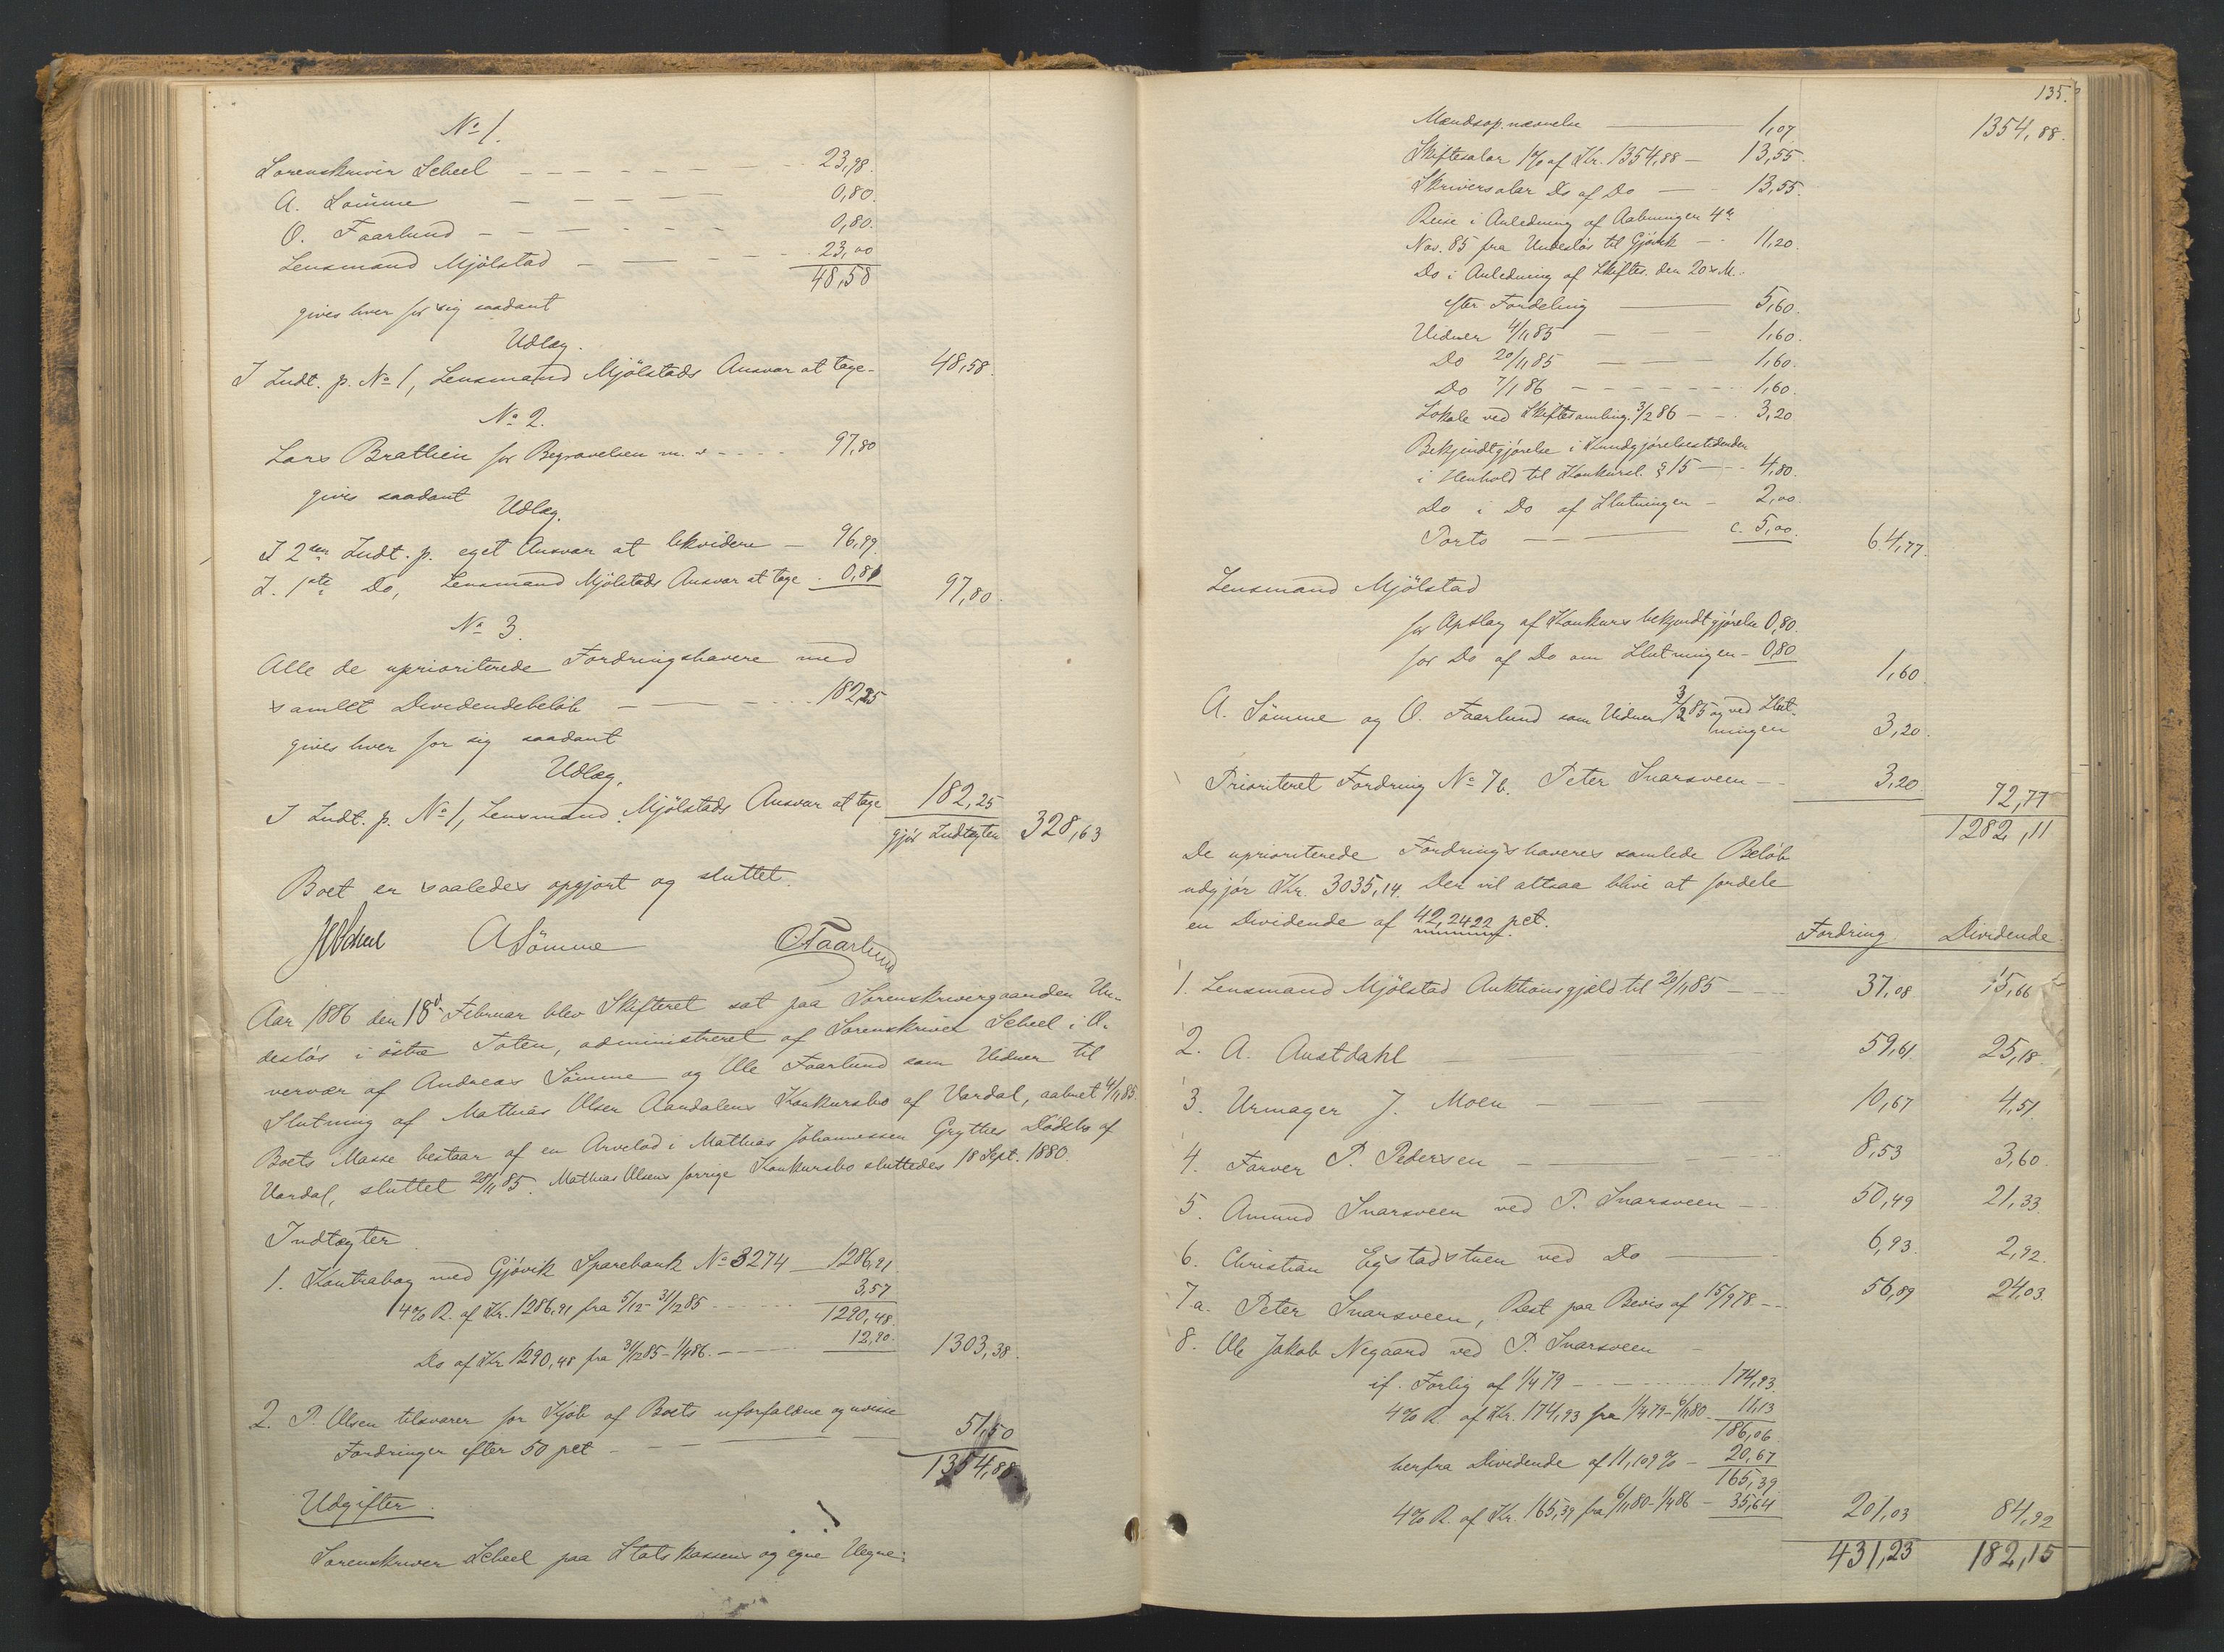 No 1.
Sorenskriver Scheel — 23,98.
A. Sömme — 0,80.
O. Faarlund — 0,80.
Lensmand Mjölstad — 23,00
48,58
gives hver for sig saadant
Udlæg.
I Indt. p. No 1, Lensmand Mjölstads Ansvar at tage — 48,58.
No 2.
Lars Brathien for Begravelsen m. v. — 97,80
gives saadant
Udlæg.
I 2den Indt. p. eget Ansvar at likvidere — 96,99.
I. 1ste Do, Lensmand Mjölstads Ansvar at tage . 0,81 97,80.
No 3.
Alle de uprioriterede Fordringshavere med
samlet Dividendebelöb — 182,25
gives hver for sig saadant
Udlæg.
I Indt. p. No 1, Lensmand Mjölstads Ansvar at tage 182,25
gjör Indtægten 328,63
Boet er saaledes opgjort og sluttet.
Scheel ASömme OFaarlund
Aar 1886 den 18d Februar blev Skifteret sat paa Sorenskrivergaarden Un-
deslös i östre Toten, administreret af Sorenskriver Scheel i O-
vervær af Andreas Sömme og Ole Faarlund som Vidner til
Slutning af Mathias Olsen Aandalens Konkursbo af Vardal, aabnet 4/11 85.
Boets Masse bestaar af en Arvelod i Mathias Johannessen Grythes Dödsbo af
Vardal, sluttet 20/11 85. Mathias Olsens forrige Konkursbo sluttedes 18 Sept. 1880.
Indtægter
1. Kontrabog med Gjövik Sparebank No 3274 — 1286,91
4% R. af Kr. 1286,91 fra 5/12 - 31/12 85 — 3,57
1290,48.
Do af Kr 1290,48 fra 31/12 85 - 1/4 86. — 12,90. 1303,38.
2. P. Olsen tilsvarer for Kjöb af Boets uforfaldne og uvisse
Fordringer efter 50 pct — 51,50
1354,88
Udgifter.
Sorenskriver Scheel paa Statskassens og egne Vegne:
135.
1354,88.
Mændsop.nævnelse — 1,07
Skiftesalær 1% af Kr. 1354,88 — 13,55.
Skriversalær Do af Do — 13,55.
Reise i Anledning af Aabningen 4de
Nov. 85 fra Undeslös til Gjövik — 11,20.
Do i Anledning af Skiftes. den 20 s. M.
efter Fordeling — 5,60.
Vidner 4/11 85 — 1,60.
Do 20/11 85 — 1,60.
Do 7/1 86 — 1,60.
Lokale ved Skiftesamling. 3/2 86 — 3,20
Bekjendtgjörelse i Kundgjörelsestidenden
i Henhold til Konkursl. § 15 — 4,80.
Do i Do af Slutningen — 2,00
Porto — c. 5,00. 64,77.
Lensmand Mjölstad
for Opslag af Konkurs bekjendtgjörelse 0,80.
for Do af Do om Slutningen — 0,80 1,60
A. Sömme og O. Faarlund som Vidner 3/2 85 og ved Slut-
ningen 3,20.
Prioriteret Fordring No 7b. Peter Snarsveen — 3,20. 72,77
1282,11
De uprioriterede Fordringshaveres samlede Belöb
udgjör Kr. 3035,14. Der vil altsaa blive at fordele
en Dividende af 42,2422 pct.
Fordring Dividende
1. Lensmand Mjölstad Auktionsgjæld til 20/11 85 — 37,08 15,66
2. A. Austdahl — 59,61 25,18.
3. Urmager J. Moen — 10,67 4,51.
4. Farver P. Pedersen — 8,53 3,60.
5. Amund Snarsveen ved P. Snarsveen — 50,49 21,33.
6. Christian Egstadstuen ved Do — 6,93. 2,92.
7a. Peter Snarsveen, Rest paa Bevis af 15/9 78 — 56,89 24,03.
8. Ole Jakob Negaard ved P. Snarsveen
if. Forlig af 1/4 79 — 174,93.
4% R. af Kr. 174,93 fra 1/4 79 - 6/11 80 — 11,13
186,06.
herfra Dividende af 11,109% — 20,67
165,39
4% R. af Kr. 165,39 fra 6/11 80 - 1/4 86 — 35,64 201,03 84,92
431,23 182,15